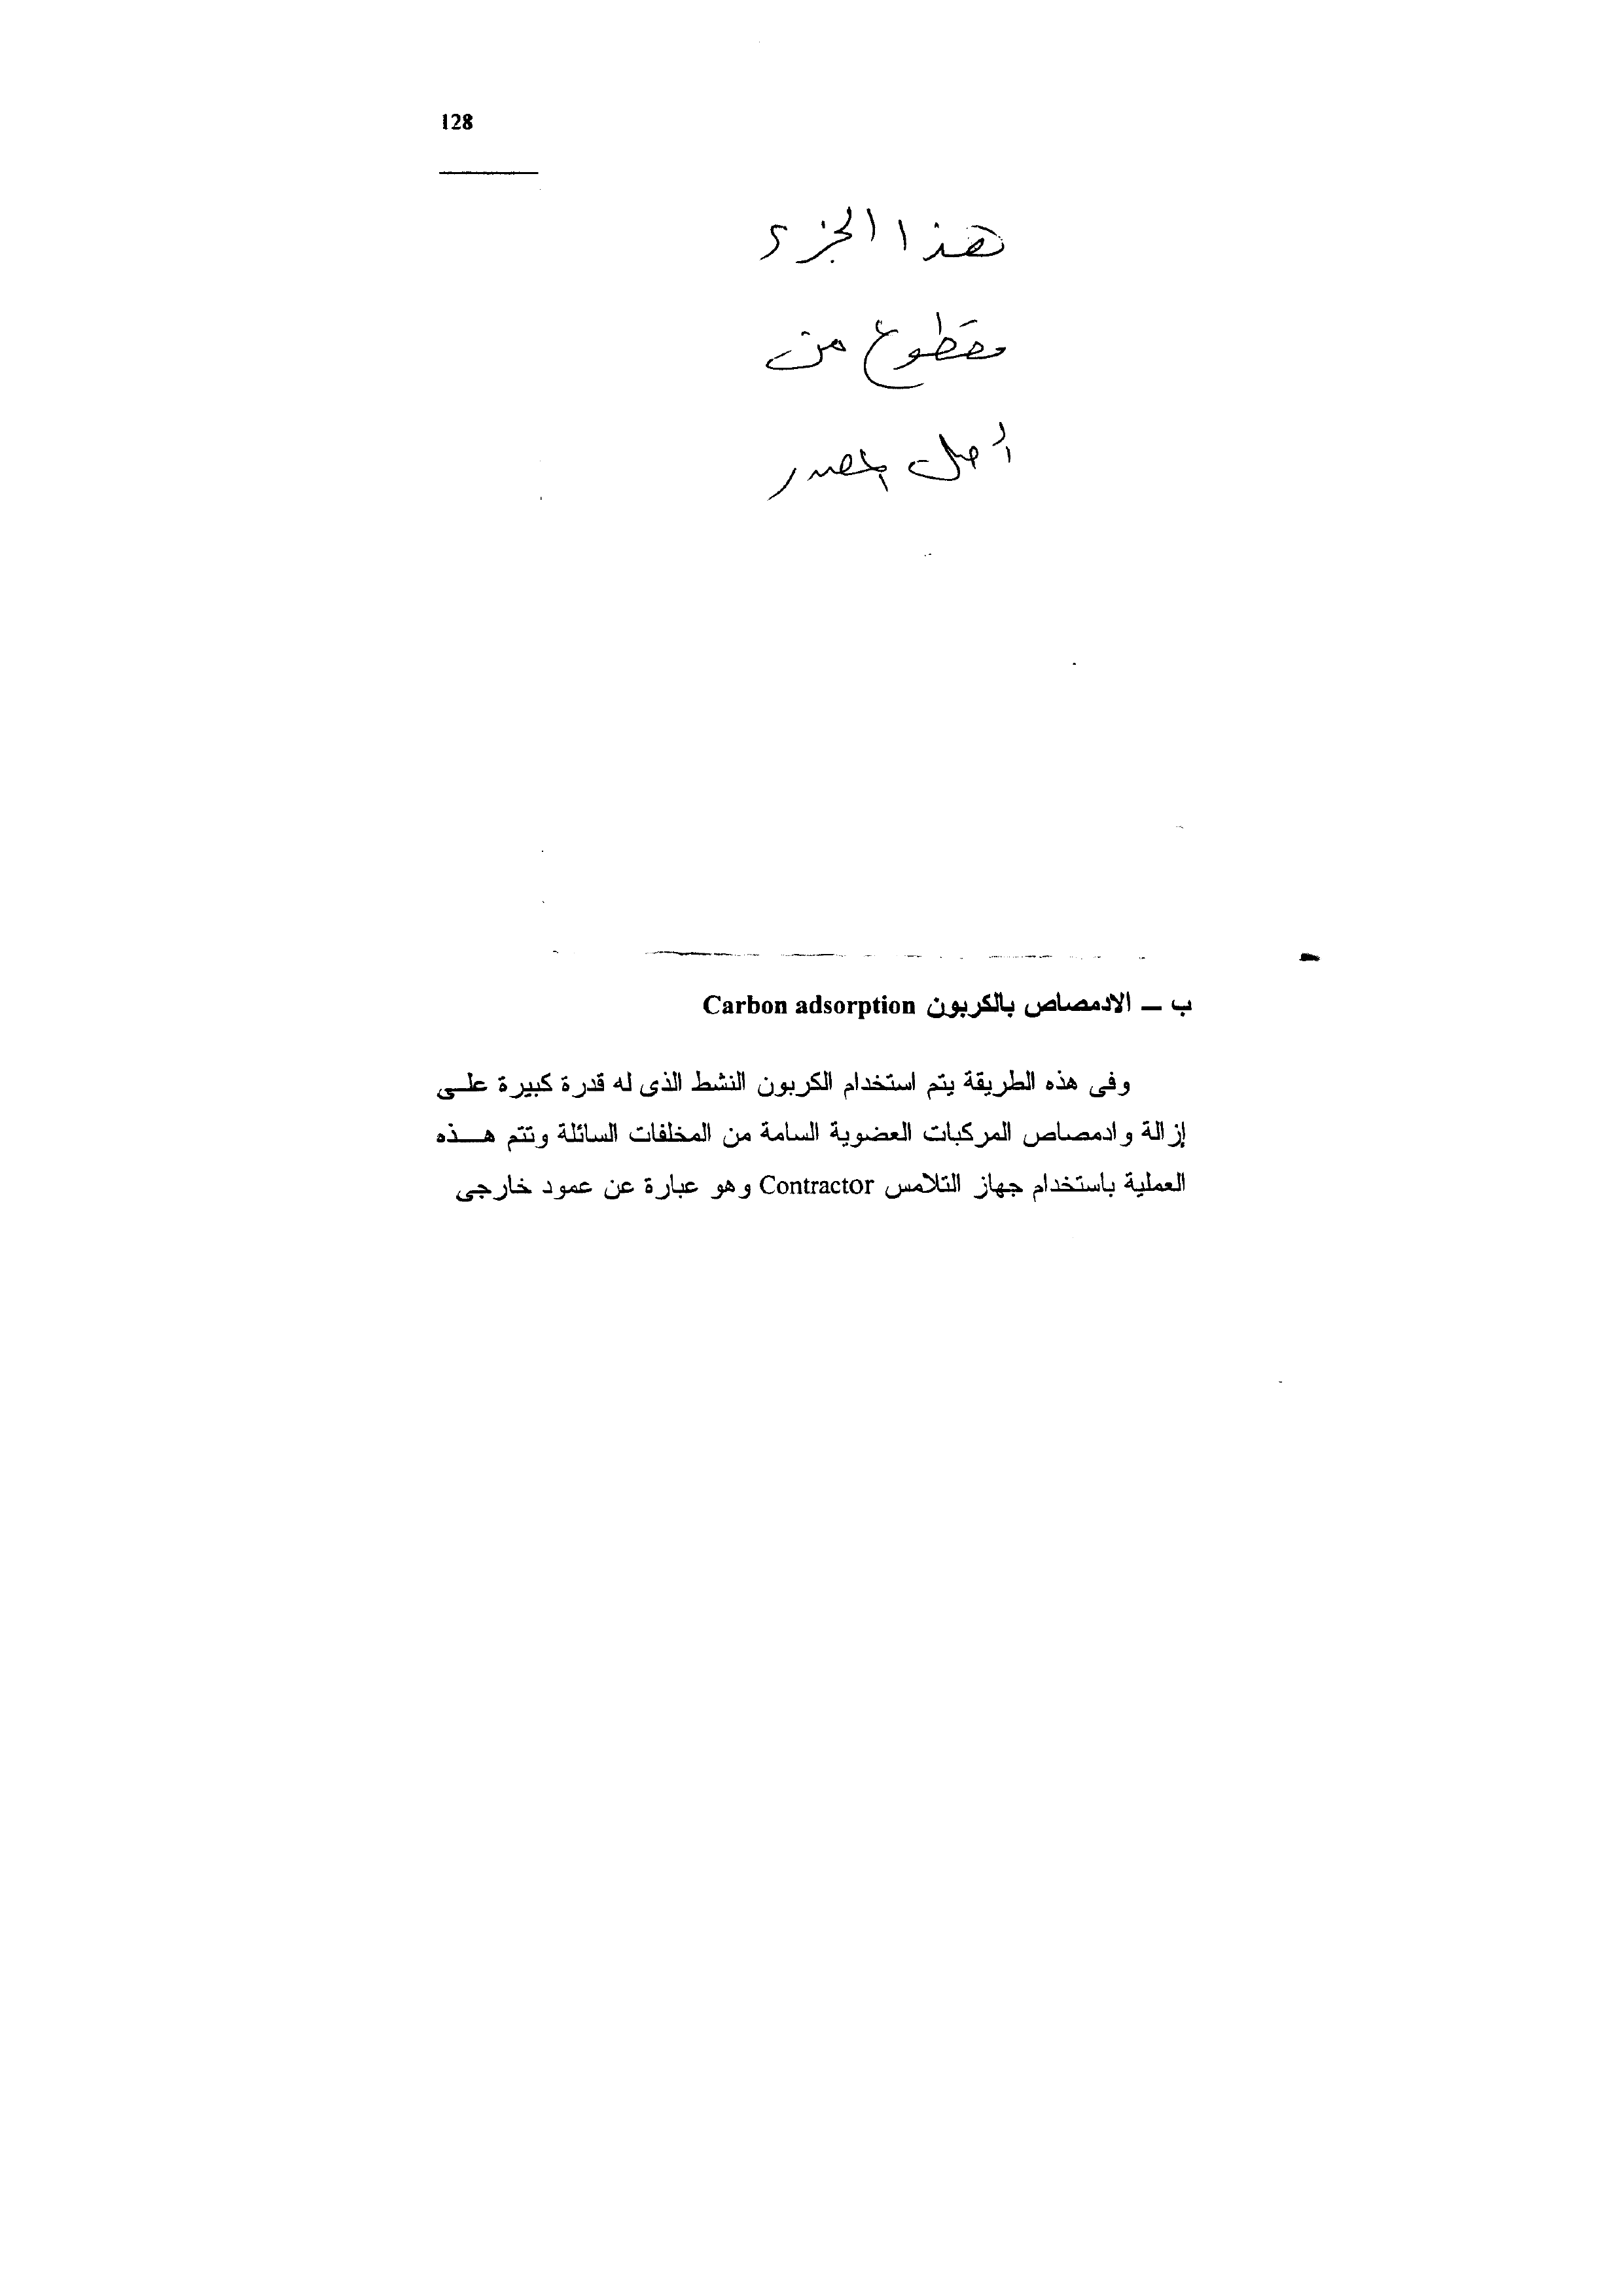 128
هذا الجزء
مقطوع من
أصل المصدر
ب – الادمصاص بالكربون Carbon adsorption
وفى هذه الطريقة يتم استخدام الكربون النشط الذى له قدرة كبيرة على
إزالة وادمصاص المركبات العضوية السامة من المخلفات السائلة وتتم هذه
العملية باستخدام جهاز التلامس Contractor وهو عبارة عن عمود خارجى